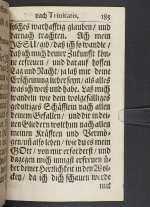 nach Trinitatis. 185
solches warhafftig glauben / und
darnach trachten. Ach mein
JESU / ach / daß ich so wandle /
daß ich mich deiner Zukunfft könne
erfreuen / und darauf hoffen
Tag und Nacht / ja laß mir deine
Erscheinung lieber seyn / als alles /
was ich weiß und habe. Laß mich
wandeln wie dein wolgefälliges
Schäfflein nach allen
deinem Gefallen / und dir in deinen
Gliedern wolthun nach allen
meinen Kräfften und Vermögen
/ und also leben / wie du es mein
GOtt / von mir erforderst / und
dagegen mich innigst erfreuen über
deiner Herrlichkeit in den Wolcken
/ da ich dich schauen werde
mit